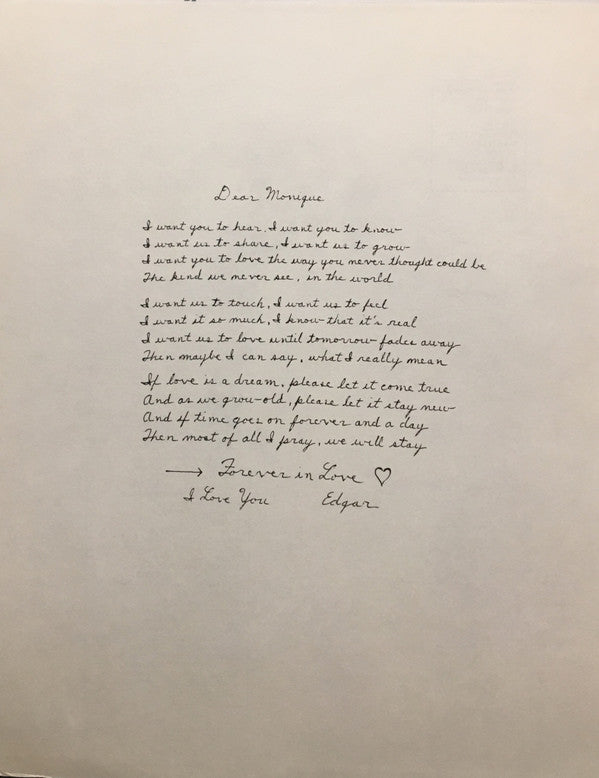 Dear Monique
I want you to hear, I want you to know
I want us to share, I want us to grow
I want you to love the way you never thought could be
The kind we never see, in the world
I want us to touch, I want us to feel
I want it so much, I know that it's real
I want us to love until tomorrow fades away
Then maybe I can say, what I really mean
If love is a dream, please let it come true
And as we grow old, please let it stay new
And if time goes on forever and a day
Then most of all I pray, we will stay
→ Forever in Love ♡
I Love You Edgar